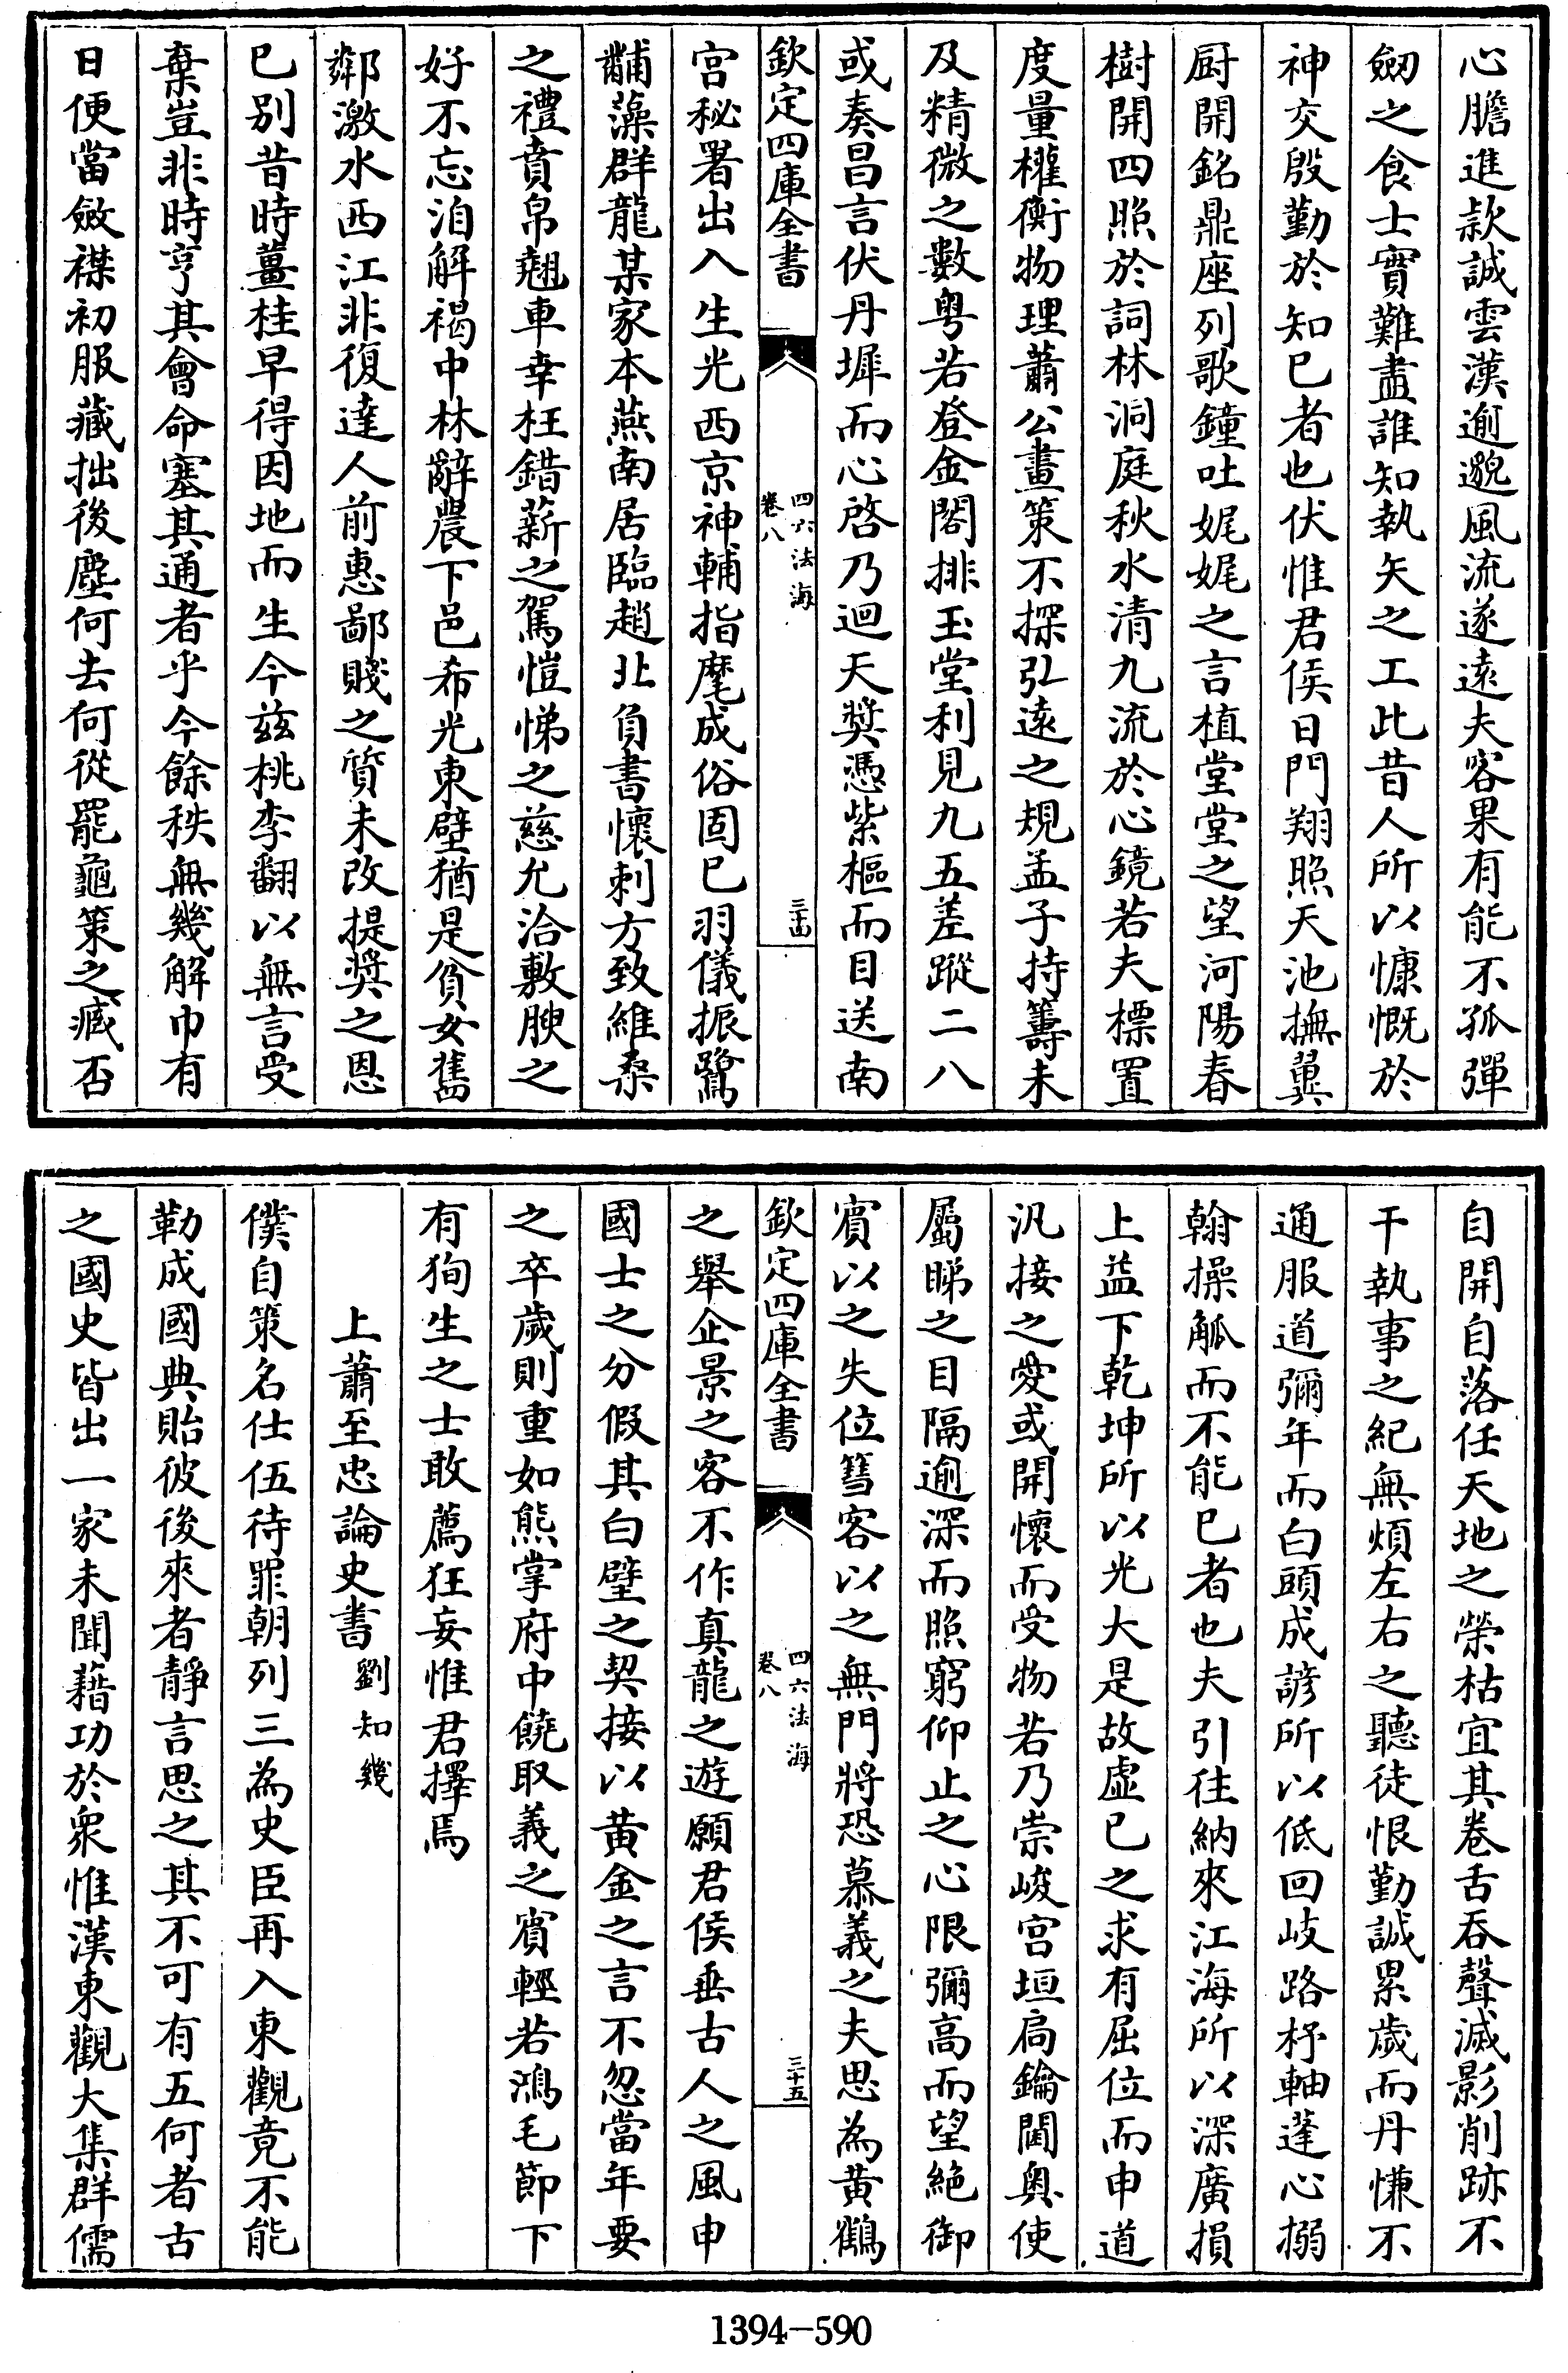 心膽進款誠雲漢逾邈風流遂遠夫客果有能不孤彈
劒之食士實難盡誰知執矢之工此昔人所以慷慨於
神交殷勤於知己者也伏惟君侯日門翔照天池撫翼
厨開銘鼎座列歌鐘吐娓娓之言植堂堂之望河陽春
樹開四照於詞林洞庭秋水清九流於心鏡若夫標置
度量權衡物理蕭公畫策不探弘遠之規孟子持籌未
及精微之數粵若登金閣排玉堂利見九五差蹤二八
或奏昌言伏丹墀而心啓乃迴天奬憑紫樞而目送南
欽定四庫全書
四六法海
卷八
三十四
宫秘署出入生光西京神輔指麾成俗固已羽儀振鷺
黼藻群龍某家本燕南居臨趙北負書懷刺方致維桑
之禮賁帛翹車幸枉錯薪之駕愷悌之慈允洽敷腴之
好不忘洎解褐中林辭農下邑希光東壁猶是貧女舊
鄰激水西江非復達人前惠鄙賤之質未改提奬之恩
已别昔時薑桂早得因地而生今兹桃李翻以無言受
棄豈非時亨其會命塞其通者乎今餘秩無幾解巾有
日便當斂襟初服藏拙後塵何去何從罷龜策之臧否
自開自落任天地之榮枯宜其卷舌吞聲滅影削跡不
干執事之紀無煩左右之聽徒恨勤誠累歲而丹慊不
通服道彌年而白頭成諺所以低回岐路杼軸蓬心搦
翰操觚而不能已者也夫引往納來江海所以深廣損
上益下乾坤所以光大是故虛已之求有屈位而申道
汎接之愛或開懷而受物若乃崇峻宫垣扃鑰閫奥使
屬睇之目隔逾深而照窮仰止之心限彌高而望絶御
賓以之失位篲客以之無門將恐慕義之夫思為黄鶴
欽定四庫全書
四六法海
卷八
三十五
之舉企景之客不作真龍之遊願君侯垂古人之風申
國士之分假其白璧之契接以黄金之言不忽當年要
之卒歲則重如熊掌府中饒取義之賓輕若鴻毛節下
有狥生之士敢薦狂妄惟君擇焉
上蕭至忠論史書 劉知幾
僕自策名仕伍待罪朝列三為史臣再入東觀竟不能
勒成國典貽彼後來者靜言思之其不可有五何者古
之國史皆出一家未聞藉功於衆惟漢東觀大集群儒
1394-590